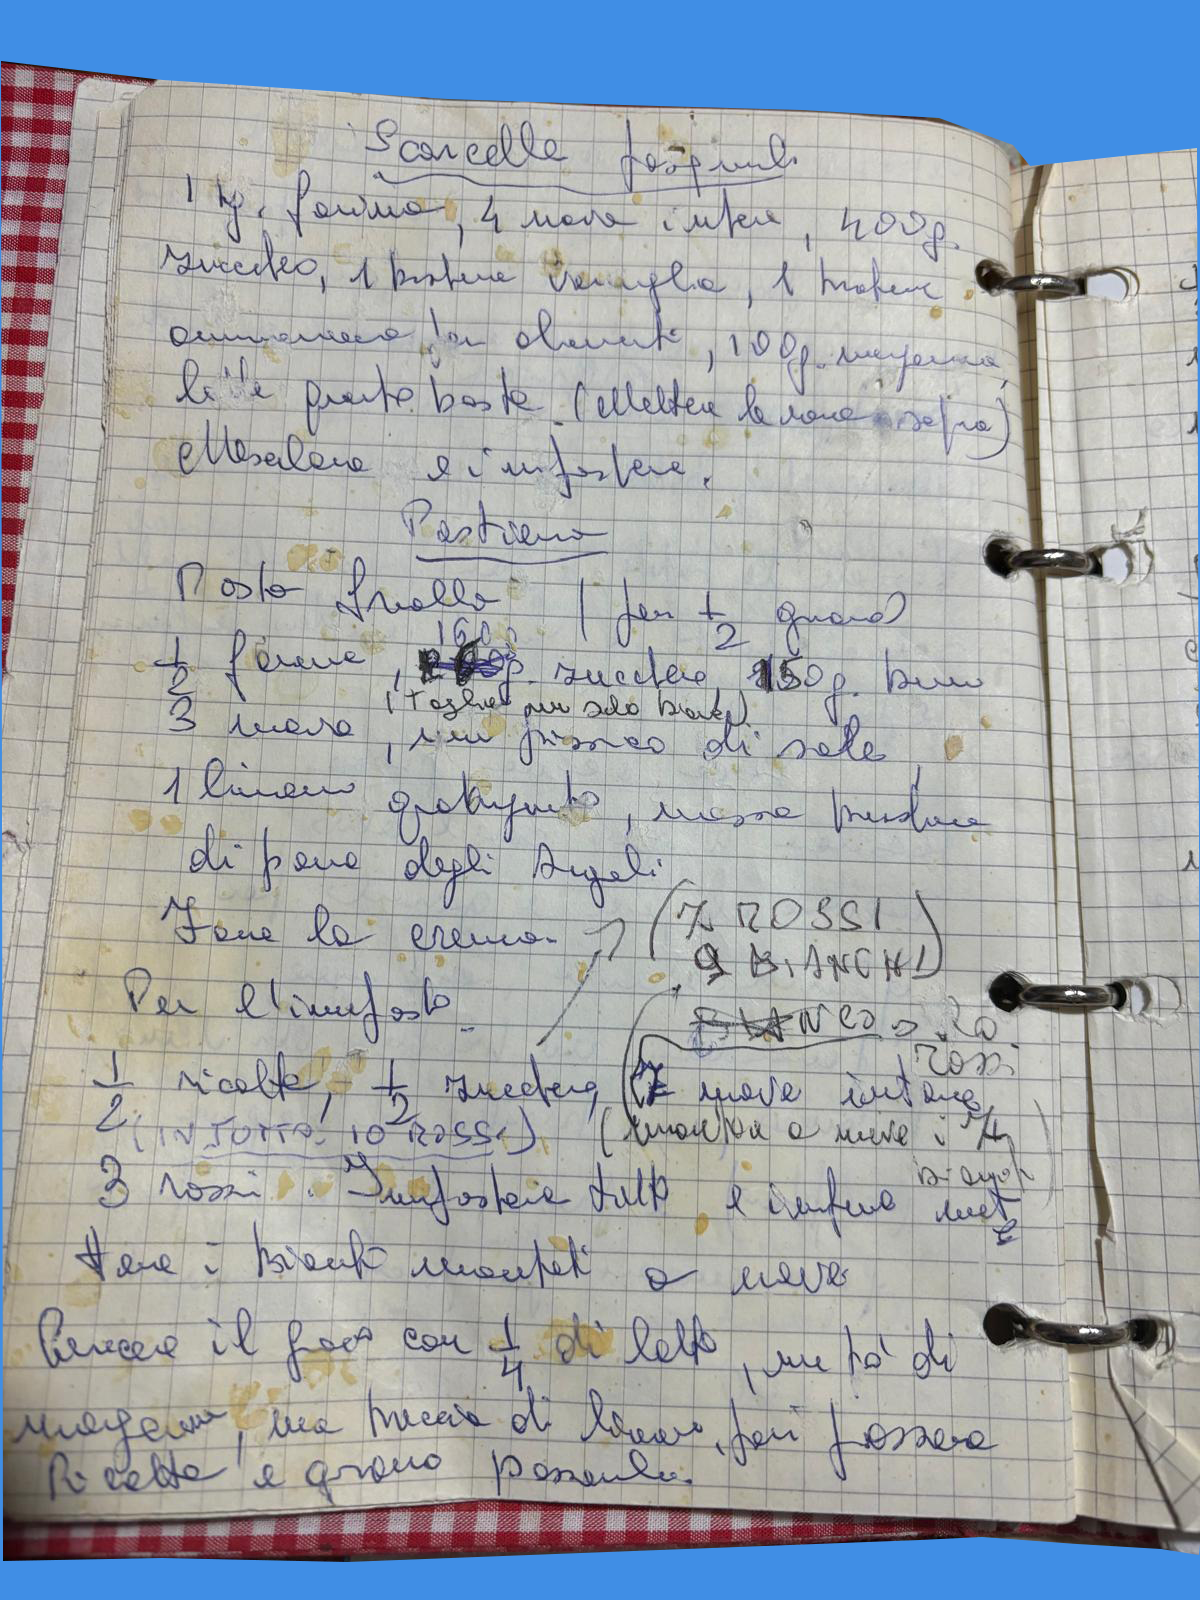 Scarcelle pasquali
1 kg. farina, 4 uova intere, 400g.
zucchero, 1 bustina vaniglia, 1 bustina
ammoniaca per alimenti, 100g. margarina,
latte quanto basta (Mettere le uova sopra)
Mescolare e impastare.
Pastiera
Pasta frolla (per 1/2 grano)
160g
1/2 farina, zucchero, 150g. burro
(Togliere un solo bianco)
3 uova, un pizzico di sale,
1 limone grattugiato, mezza bustina
di pane degli Angeli
Fare la crema. (7 ROSSI
9 BIANCHI)
Per l'impasto
BIANCO 10
rossi
1/2 ricotta, 1/2 zucchero, (7 uova intere,
(IN TUTTO 10 ROSSI) (montare a neve i 4
bianchi)
3 rossi. Impastare tutto e infine met
tere i bianchi montati a neve
Cuocere il grano con 1/4 di latte, un pò di
margarina, una buccia di limone, poi passare
Ricotta e grano passarli.